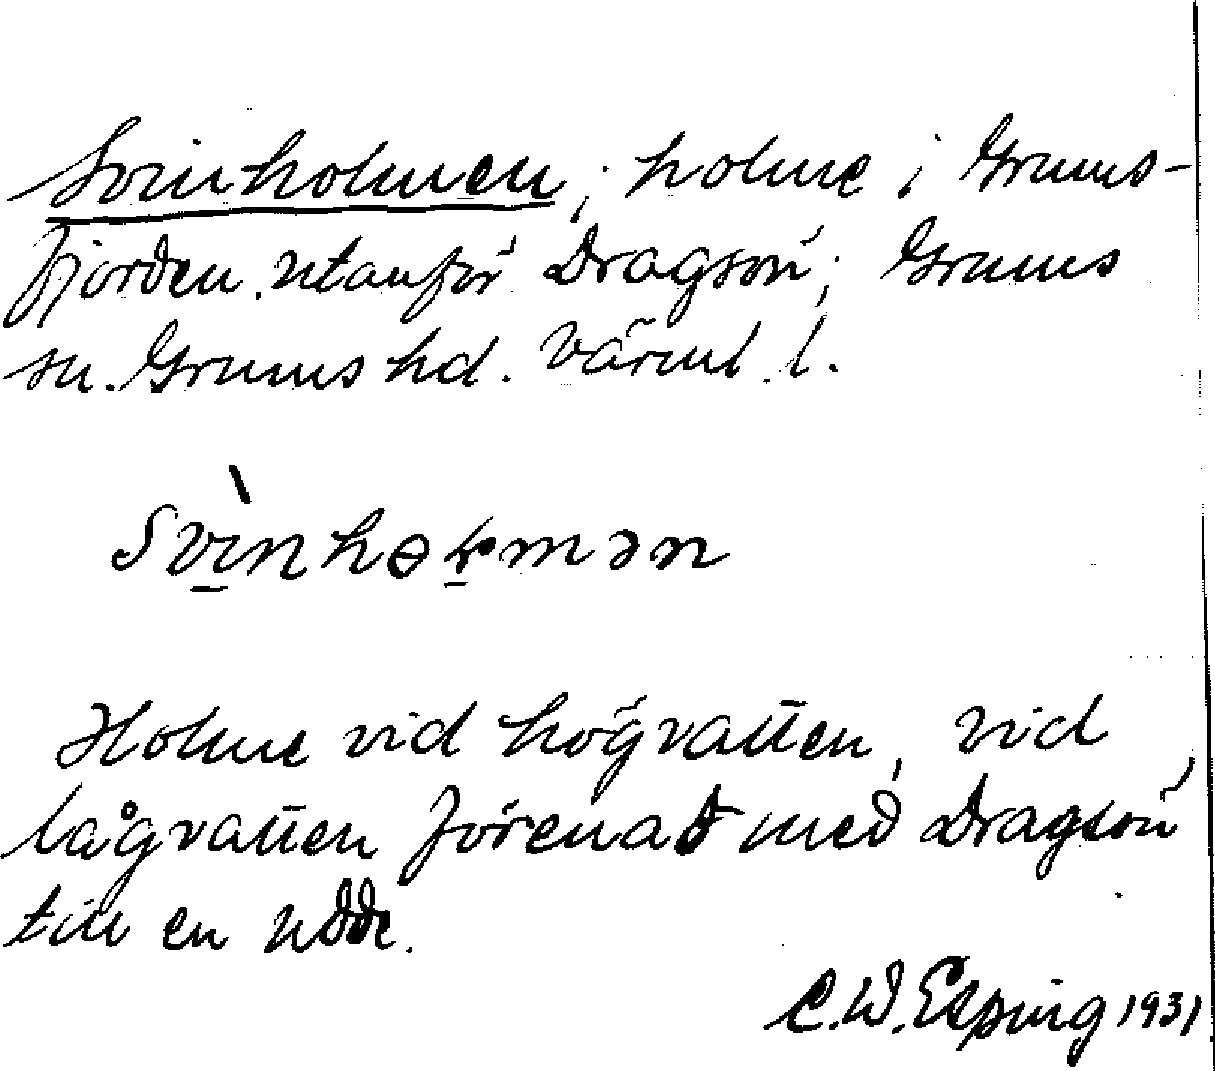 Svinholmen; holme i Grums-
fjorden utanför Dragsön; Grums
sn. Grums hd. Värml. l.
Svi̠nhɵɽmən
Holme vid högvatten, vid
lågvatten förenad med Dragsön
till en udde.
C.W. Esping 1931